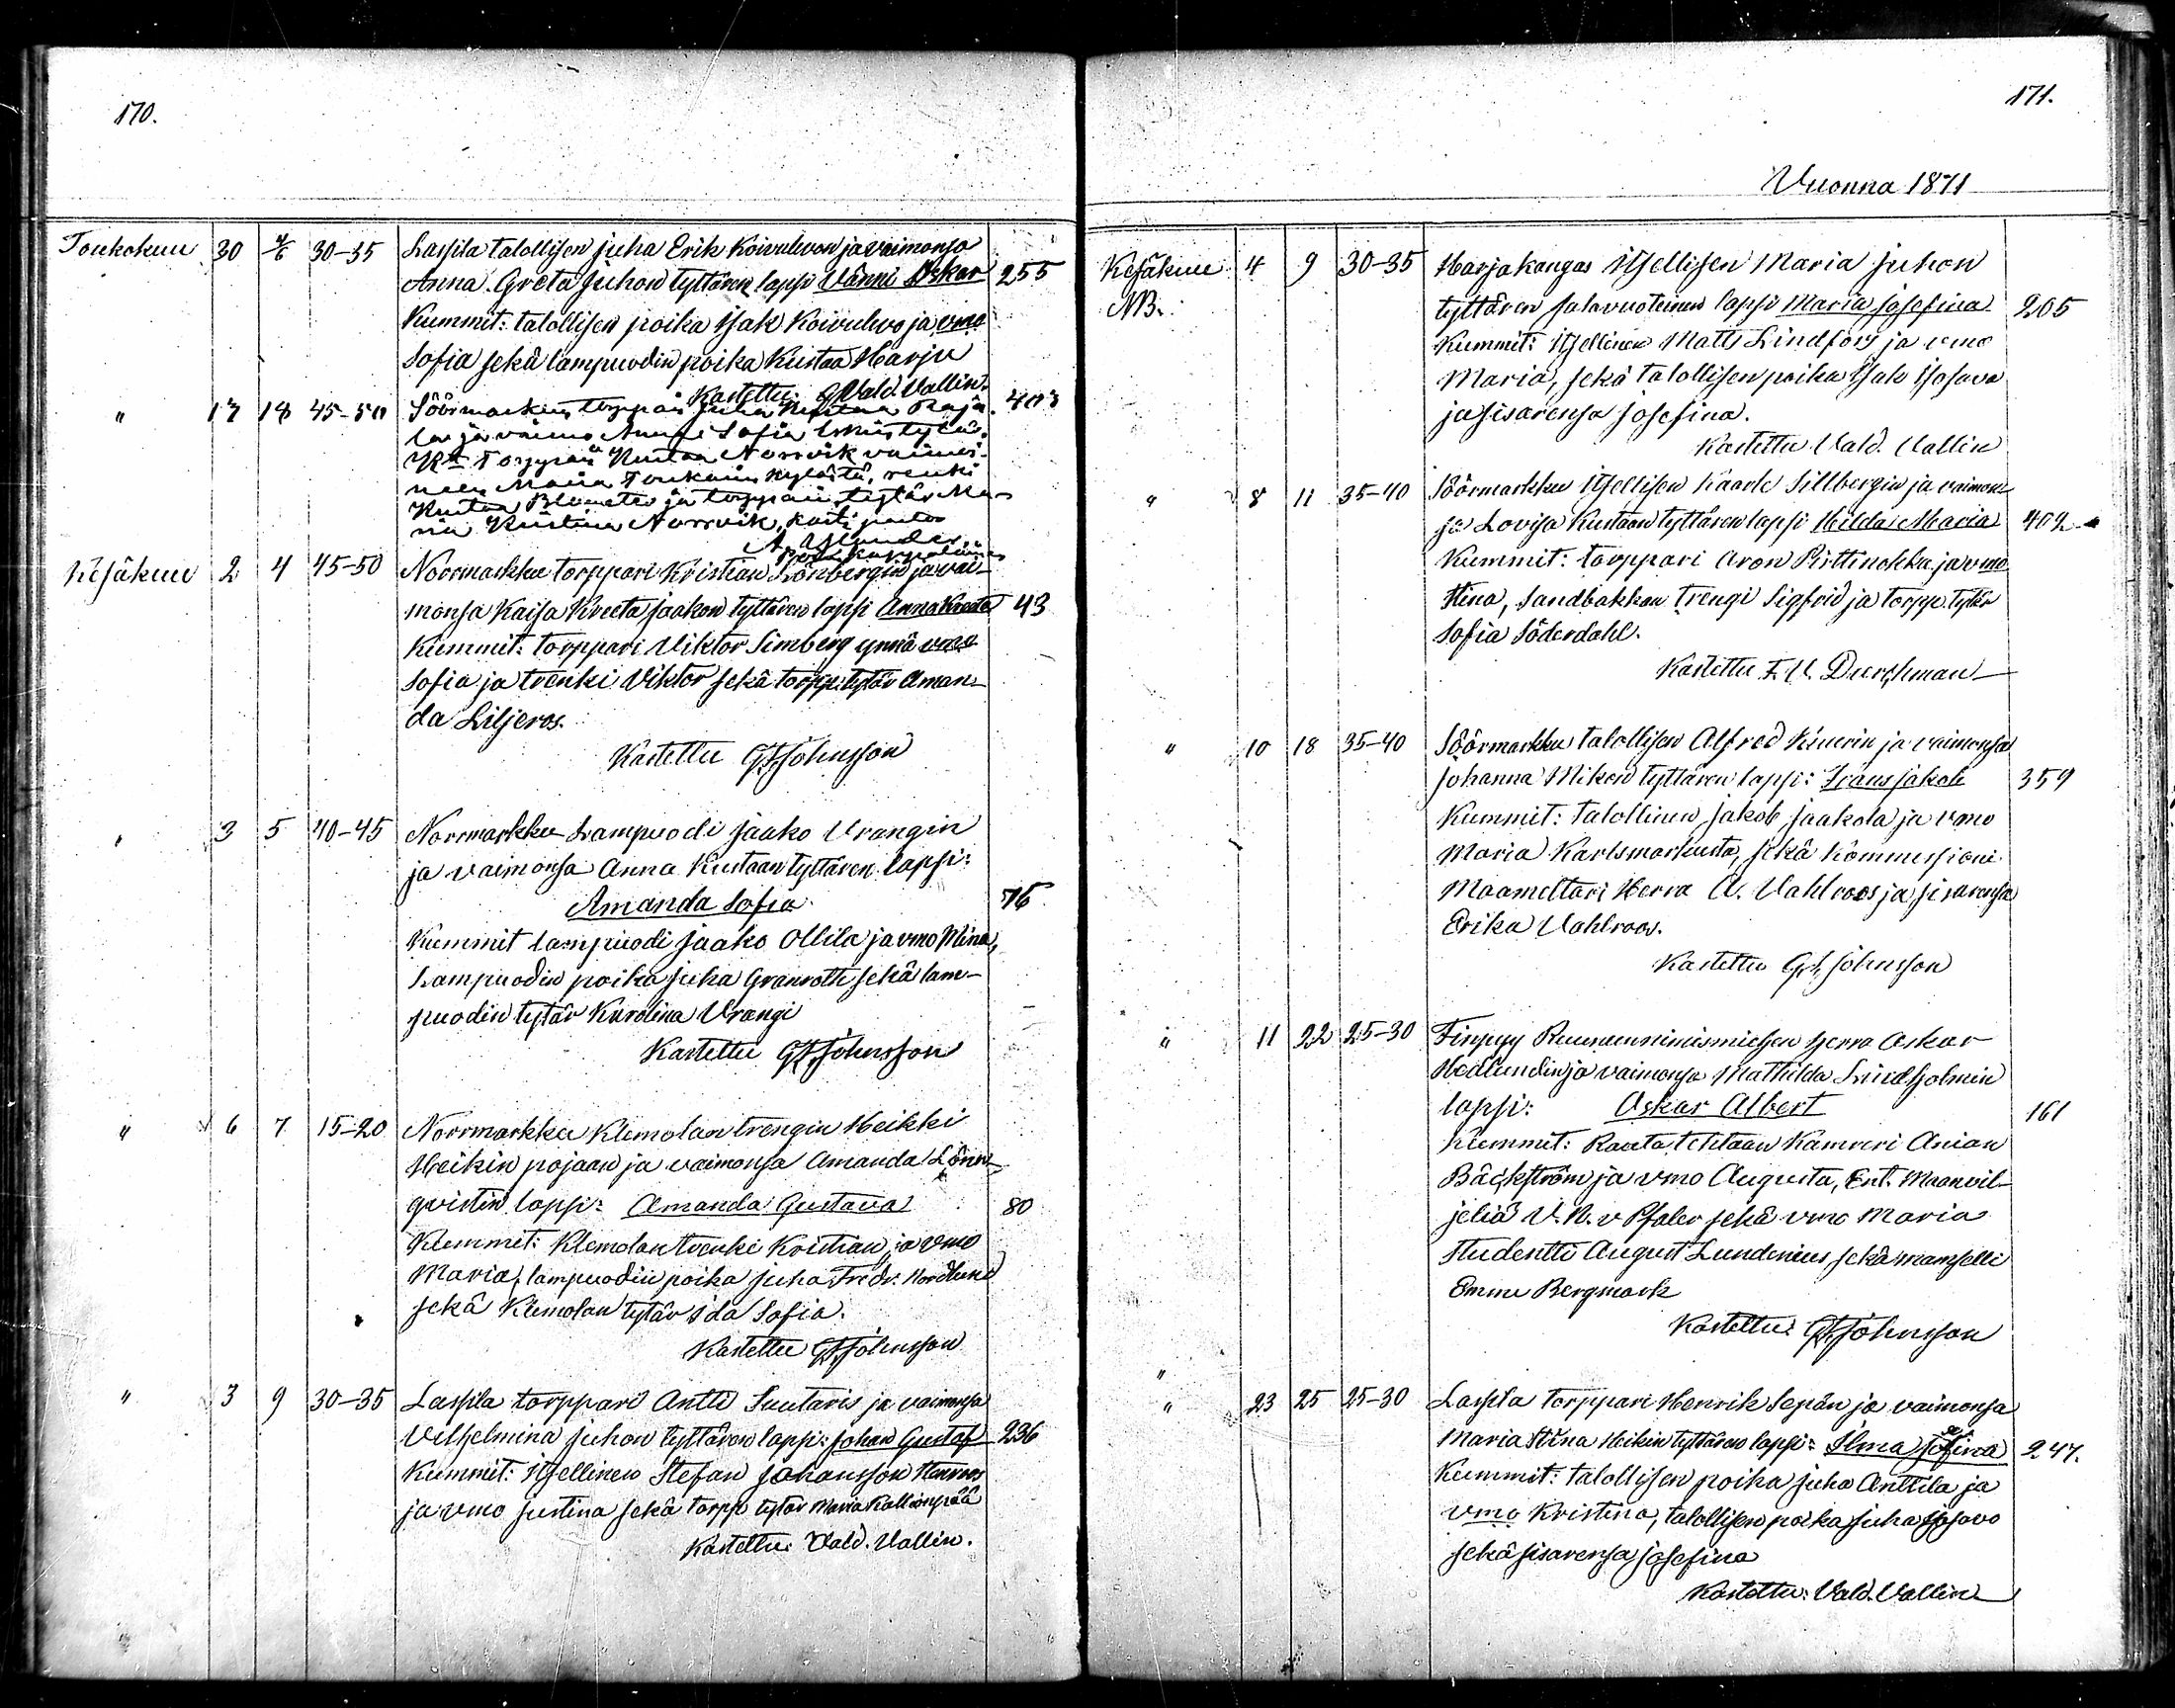 170.
Toukokuu 30 4/6 30-35 Lassila talollisen Juha Erik Koivulevon ja vaimonsa
Anna Greta Juhon tyttären lapsi Vänni Oskar 255
Kummit: talollisen poika Isak Koivulevo ja vmo
Sofia sekä lampuodin poika Kustaa Harju
Kastettu: G Vald. Vallin.
" 17 18 45-50 Söörmarkun torppari Juha Kustaa Raja- 403
la ja vaimo Anna Sofia
Kt Torppari Kustaa Norrvik vaimoi-
neen Maria Toukarin kylästä, renki
Kustaa ja torpparin tytär Ma-
ria Kristina Norrvik, kasti
Kesäkuu 2 4 45-50 Noormarkku torppari Kristian Lönbergin ja vai-
monsa Kaisa Kreeta Jaakon tyttären lapsi Anna Kreeta 43
Kummit: torppari Viktor Simberg ynnä vmo
Sofia ja trenki Viktor sekä torpp. tytär Aman-
da Liljeros.
Kastettu G F Johnsson
" 3 5 40-45 Norrmarkku Lampuodi Jaako Vrangin
ja vaimonsa Anna Kustaan tyttären lapsi:
Amanda Sofia 76
Kummit lampuodi Jaako Ollila ja vmo Mina,
Lampuodin poika Juha Granroth sekä lam-
puodin tytär Karolina Vrangi
Kastettu G F Johnsson
" 6 7 15-20 Norrmarkku Klemolan trengin Heikki
Heikin pojaan ja vaimonsa Amanda Lönn-
qvistin lapsi: Amanda Gustava 80
Kummit: Klemolan trenki Kristian ja vmo
Maria, lampuodin poika Juha Fredr. Nordlund
sekä Klemolan tytär Ida Sofia.
Kastettu G F Johnsson
" 3 9 30-35 Lassila torppari Antti Suutaris ja vaimonsa
Vilhelmina Juhon tyttären lapsi: Johan Gustaf 236
Kummit: Itsellinen Stefan Johansson
ja vmo Justina sekä torpp tytär Maria Kallionpää
Kastettu: Vald. Vallin.
171.
Vuonna 1871
Kesäkuu 4 9 30-35 Harjakangas Itsellisen Maria Juhon
NB. tyttären salavuoteinen lapsi Maria Josefina 205
Kummit: Itsellinen Matts Lindfors ja vmo
Maria, sekä talollisen poika Isak Isosavo
ja sisarensa Josefina.
Kastettu Vald. Vallin
" 8 11 35-40 Söörmarkku Itsellisen Kaarle Sillbergin ja vaimon-
sa Lovisa Kustaan tyttären lapsi Hilda Maria 402
Kummit: torppari Aron Rittinokka ja vmo
Stina, Sandbakkan trengi Sigfrid ja torpp. tytär
Sofia Söderdahl.
Kastettu F. V. Durchman
" 10 18 35-40 Söörmarkku talollisen Alfred Knuerin ja vaimonsa
Johanna Mikon tyttären lapsi: Frans Jakob 359
Kummit: talollinen Jakob Jaakola ja vmo
Maria Karlsmarkusta, sekä Kommissioni
Maamettari Herra A. Vahlroos ja sisarensa
Erika Vahlroos.
Kastettu G F Johnsson
" 11 22 25-30 Finpyy Ruununnimismiehen Herra Oskar
Hedlundin ja vaimonsa Mathilda Lindholmin
lapsi: Oskar Albert 161
Kummit: Rauta tehtaan Kamreri Anian
Bäckström ja vmo Augusta, Ent. Maanvil-
jeliä V. N. v Pfaler sekä vmo Maria
Studentti August Lundenius sekä mamselli
Emma Bergmark
Kastettu: G F Johnsson
"
" 23 25 25-30 Lassila torppari Henrik Sepän ja vaimonsa
Maria Stina Heikin tyttären lapsi: Ilma Josefina 247.
Kummit: talollisen poika Juha Anttila ja
vmo Kristina, talollisen poika Juha Isosavo
sekä sisarensa Josefina
Kastettu: Vald. Vallin